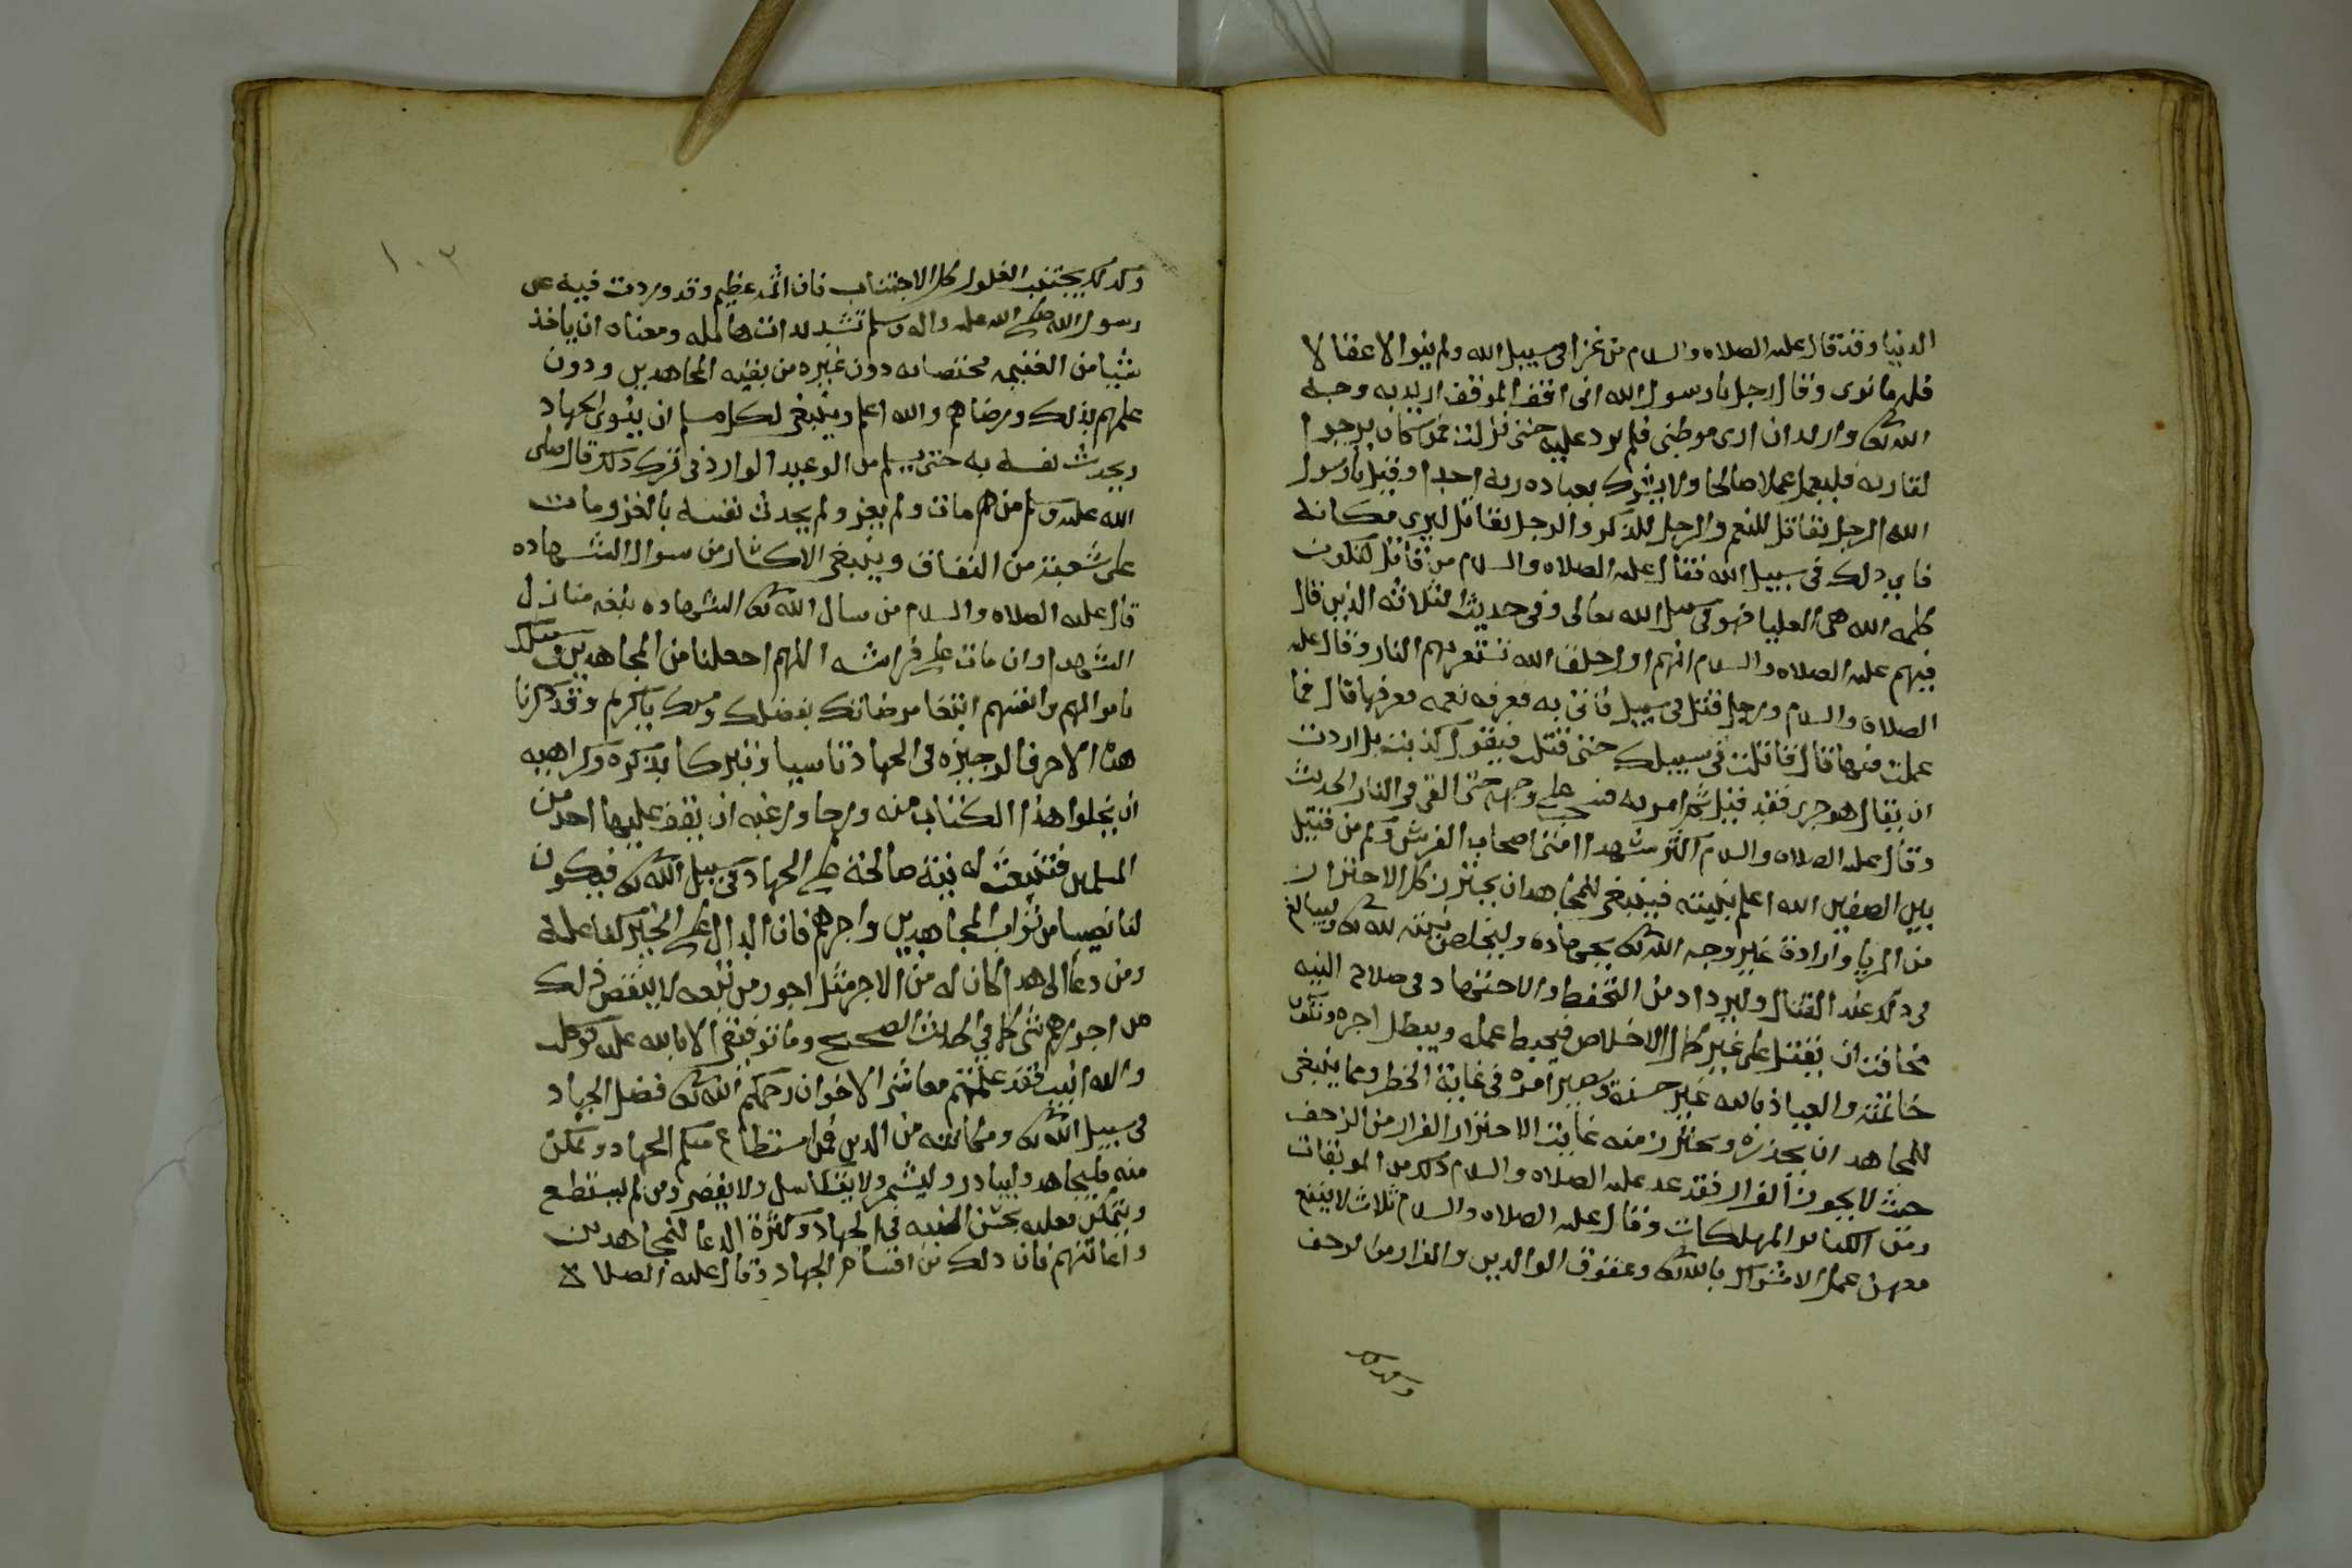 الدنيا وقد قال عليه الصلاه والسلام من غزا في سبيل الله ولم ينوا الا عقالا
فله ما نوى وقال رجل يا رسول الله انى اقف الموقف اريد به وجه
الله تعالى واريد ان ارى موطنى فلم يرد عليه حتى نزلت فمن كان يرجوا
لقا ربه فليعمل عملا صالحا ولا يشرك بعباده ربه احدا وقيل يا رسول
الله الرجل يقاتل للمغنم والرجل للذكر والرجل يقاتل ليرى مكانه
فاى ذلك في سبيل الله فقال عليه الصلاه والسلام من قاتل لتكون
كلمه الله هي العليا فهو في سبيل الله تعالى وفى حديث الثلاثه الذين قال
فيهم عليه الصلاه والسلام انهم اول خلق الله تستعر بهم النار وقال عليه
الصلاه والسلام ورجل قتل في سبيل فاتى به فعرفه نعمه فعرفها قال فما
عملت فيها قال قاتلت في سبيلك حتى قتلت فيقول كذبت بل اردت
ان يقال هو جرى فقد قيل ثم امر به فسحب على وجهه حتى القى فى النار الحديث
وقال عليه الصلاه والسلام اكثر شهدا امتى اصحاب الفرش وكم من قتيل
بين الصفين الله اعلم بنيته فينبغى للمجاهد ان يحترز كل الاحتراز
من الريا وارادة غير وجه الله تعالى بجهاده وليخلص نيته لله تعالى ويبالغ
فى ذلك عند القتال وليزداد من التحفظ والاجتهاد في صلاح النيه
مخافت ان يقتل على غير كمال الاخلاص فيحبط عمله ويبطل اجره وتكون
خاتمته والعياذ بالله غير حسنة ويصير امره في غاية الخطر ومما ينبغى
للمجاهد ان يحذره ويحترز منه غايت الاحتراز الفرار من الزحف
حيث لا يجوز الفرار فقد عد عليه الصلاه والسلام ذلك من الموبقات
ومن الكبائر المهلكات وقال عليه الصلاه والسلام ثلاث لا ينفع
معهن عمل الاشراك بالله تعالى وعقوق الوالدين والفرار من الزحف
وكذلك
١٠٣
وكذلك يجتنب الغلول كل الاجتناب فان اثمه عظيم وقد وردت فيه عن
رسول الله صلى الله عليه واله وسلم تشديدات هائله ومعناه ان ياخذ
شيا من الغنيمه مختصا به دون غيره من بقيه المجاهدين ودون
علمهم بذلك ورضاهم والله اعلم وينبغى لكل مسلم ان ينوى الجهاد
ويحدث نفسه به حتى يسلم من الوعيد الوارد في ترك ذلك قال صلى
الله عليه وسلم من مات ولم يغز ولم يحدث نفسه بالغزو مات
على شعبة من النفاق وينبغى الاكثار من سوال الشهاده
قال عليه الصلاه والسلام من سال الله تعالى الشهاده بلغه منازل
الشهدا وان مات على فراشه اللهم اجعلنا من المجاهدين في سبيلك
باموالهم وانفسهم ابتغا مرضاتك بفضلك ومنك يا كريم وقد ذكرنا
هذا الاحرف الوجيزه في الجهاد تاسيا وتبركا بذكره وكراهيه
ان يخلوا هذا الكتاب منه ورجا ورغبه ان يقف عليها احد من
المسلمين فتنبعث له نية صالحة على الجهاد في سبيل الله تعالى فيكون
لنا نصيبا من ثواب المجاهدين واجرهم فان الدال على الخير كفاعله
ومن دعا الى هدا كان له من الاجر مثل اجور من تبعه لا ينقص ذلك
من اجورهم شى كما في الحديث الصحيح وما توفيقى الا بالله عليه توكلت
واليه انيب فقد علمتم معاشر الاخوان رحمكم الله تعالى فضل الجهاد
في سبيل الله تعالى ومكانته من الدين فمن استطاع منكم الجهاد وتمكن
منه فليجاهد وليبادر وليشمر ولا يتكاسل ولا يقصر ومن لم يستطع
ويتمكن فعليه بحسن النيه في الجهاد وكثرة الدعا للمجاهدين
واعانتهم فان ذلك من اقسام الجهاد وقال عليه الصلاة